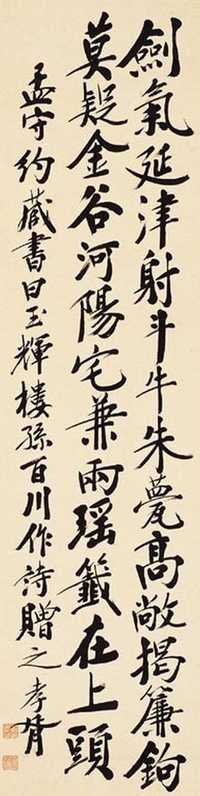 劍氣延津射斗牛朱甍高敞揭簾鉤
莫疑金谷河陽宅兼兩瑶籤在上頭
孟守約藏書曰玉輝樓孫百川作詩贈之 孝胥